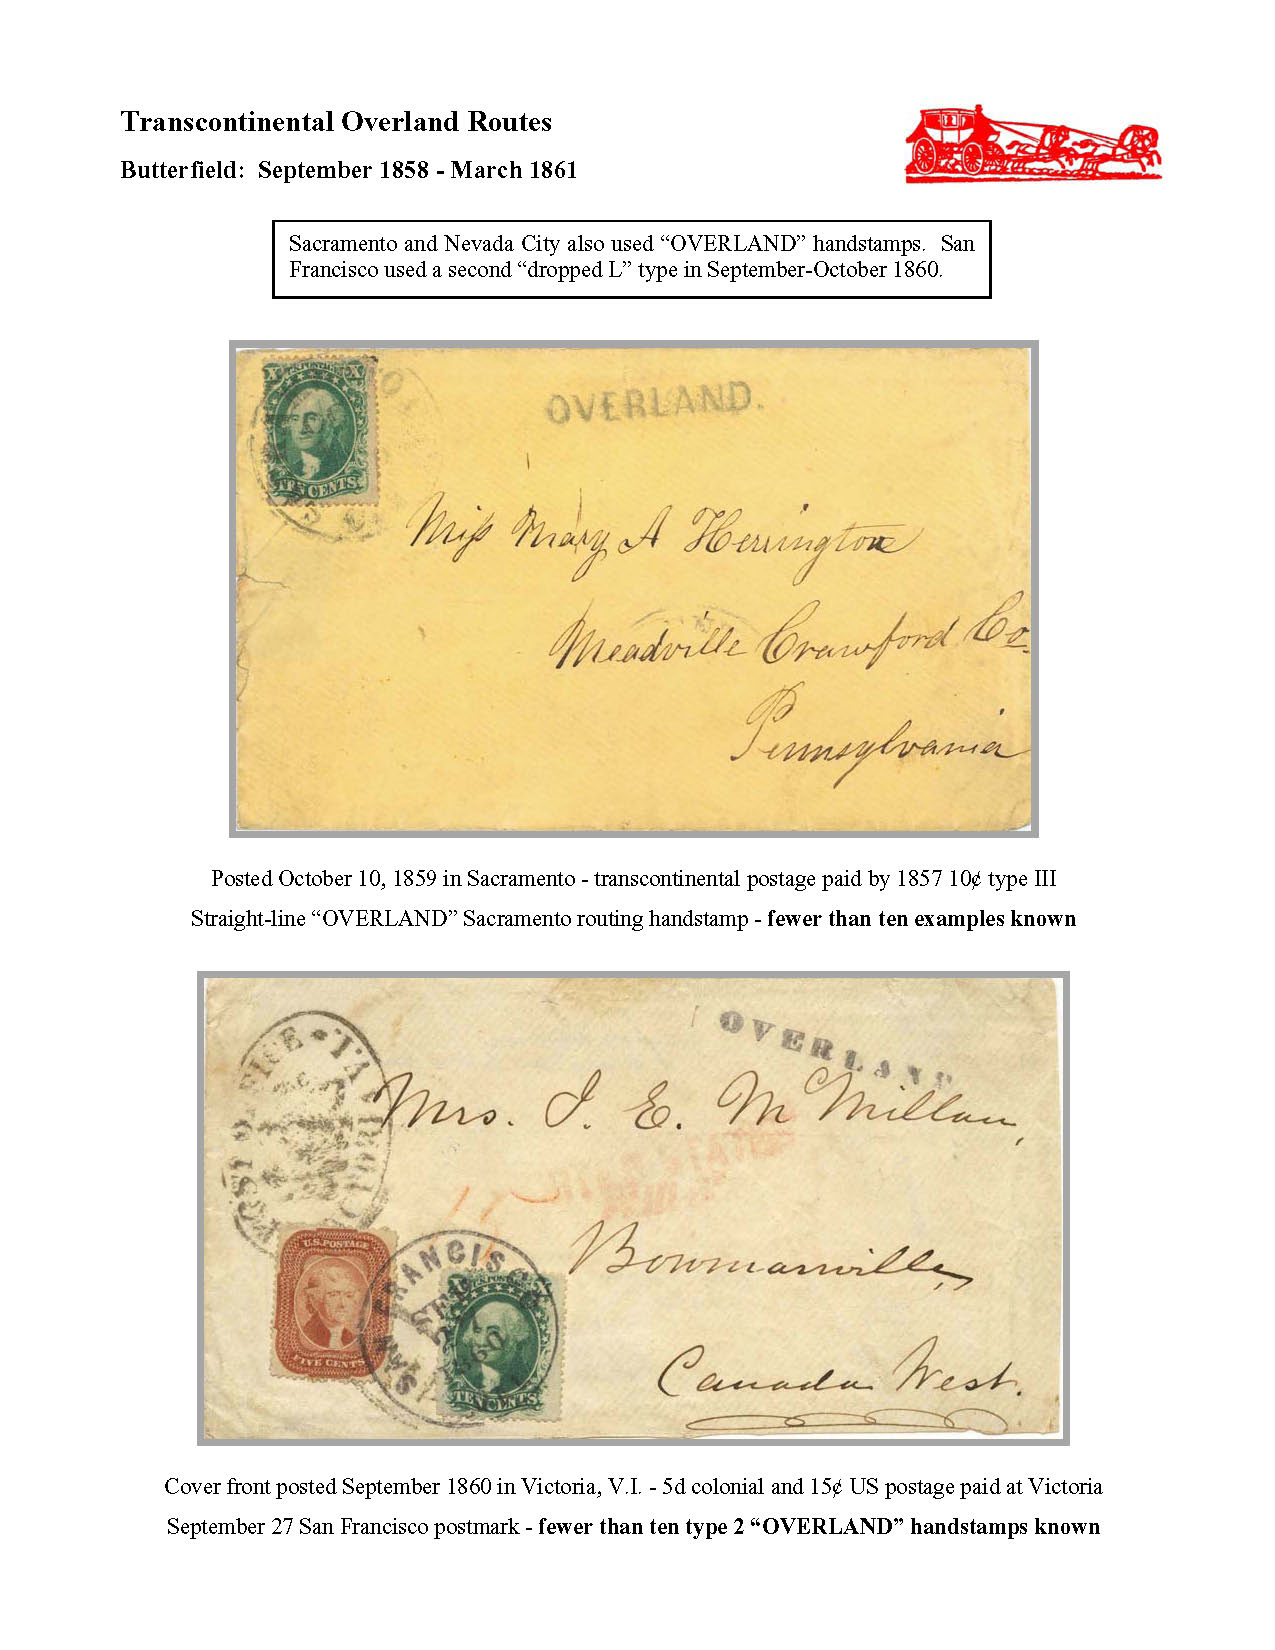 Transcontinental Overland Routes
Butterfield:  September 1858 - March 1861
Sacramento and Nevada City also used “OVERLAND” handstamps.  San
Francisco used a second “dropped L” type in September-October 1860.
X U.S. POSTAGE X
TEN CENTS
OVERLAND.
Miss Mary A Herrington
Meadville Crawford Co.
Pennsylvania
Posted October 10, 1859 in Sacramento - transcontinental postage paid by 1857 10¢ type III
Straight-line “OVERLAND” Sacramento routing handstamp - fewer than ten examples known
OVERLAND
POST OFFICE
Mrs. J. E. McMillan,
U.S. POSTAGE
FIVE CENTS
SAN FRANCISCO
SEP
27
1860
TEN CENTS
Bowmanville,
Canada West.
Cover front posted September 1860 in Victoria, V.I. - 5d colonial and 15¢ US postage paid at Victoria
September 27 San Francisco postmark - fewer than ten type 2 “OVERLAND” handstamps known